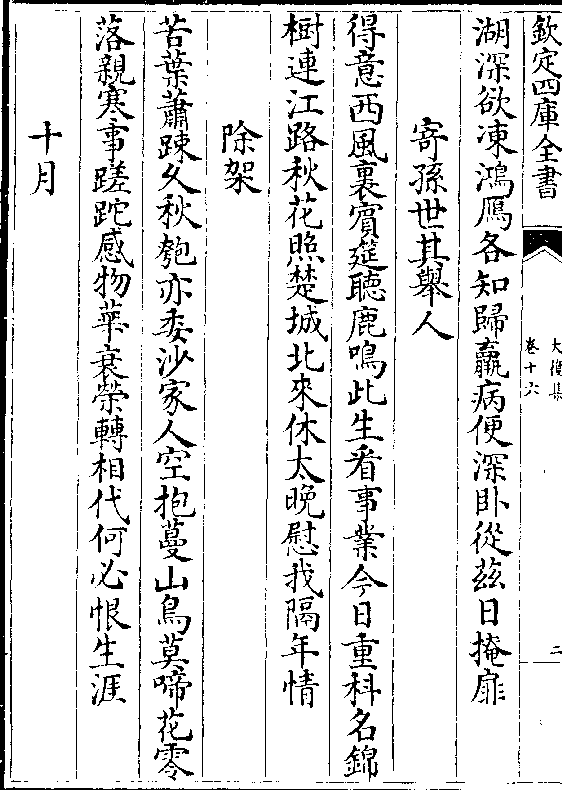 欽定四庫全書
大復集
卷十六
二
湖深欲凍鴻鴈各知歸羸病便深卧從茲日掩扉
寄孫世其舉人
得意西風裏賓筵聽鹿鳴此生看事業今日重科名錦
樹連江路秋花照楚城北來休太晚慰我隔年情
除架
苦葉蕭疎久秋匏亦委沙家人空抱蔓山鳥莫啼花零
落親寒事蹉跎感物華衰榮轉相代何必恨生涯
十月